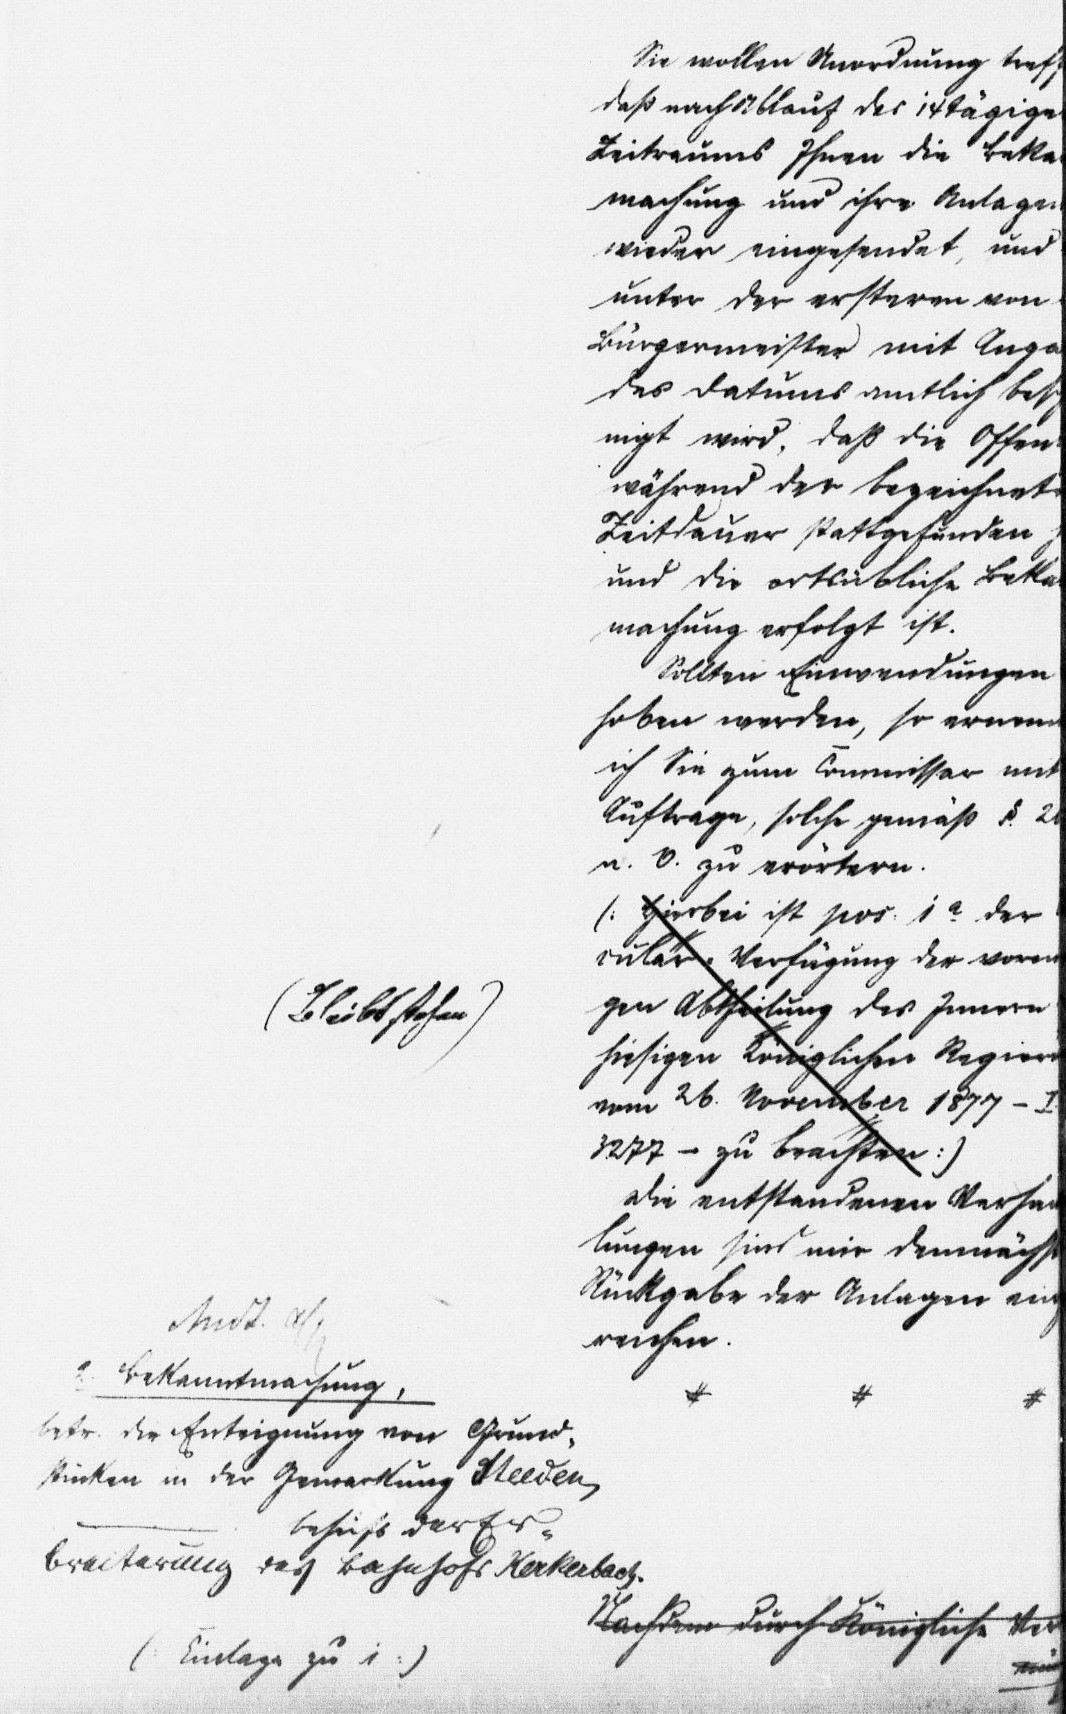 Sie wollen Anordnung treff
daß nach Ablauf des 14tägige
Zeitraums Ihnen die Beka
machung und ihre Anlagen
wieder eingesendet, und
unter der ersteren von
Bürgermeister mit Anga
des Datums amtlich besch
nigt wird, daß die Offen
während der bezeichnete
Zeitdauer stattgefunden h
und die ortsübliche Beka
machung erfolgt ist.
Sollten Einwendungen
hoben werden, so ernenn
ich Sie zum Commissar mit
Auftrage, solche gemäß §. 20
a. O. zu erörtern.
(: Hierbei ist pos. 1a der
cular-Verfügung der vorma
gen Abtheilung des Innern
hiesigen Königlichen Regieru
vom 26. November 1877 – I
3277 – zu beachten :)
(Bleibt stehen)
Die entstandenen Verhan
lungen sind mir demnächst
Rückgabe der Anlagen einz
reichen.
# # #
2. Bekanntmachung,
betr. die Enteignung von Grund-
stücken in der Gemarkung Steeden,
behufs der Er-
breiterung des Bahnhofs Kerkerbach.
(: Einlage zu 1 :)
Nachdem durch Königliche Ver